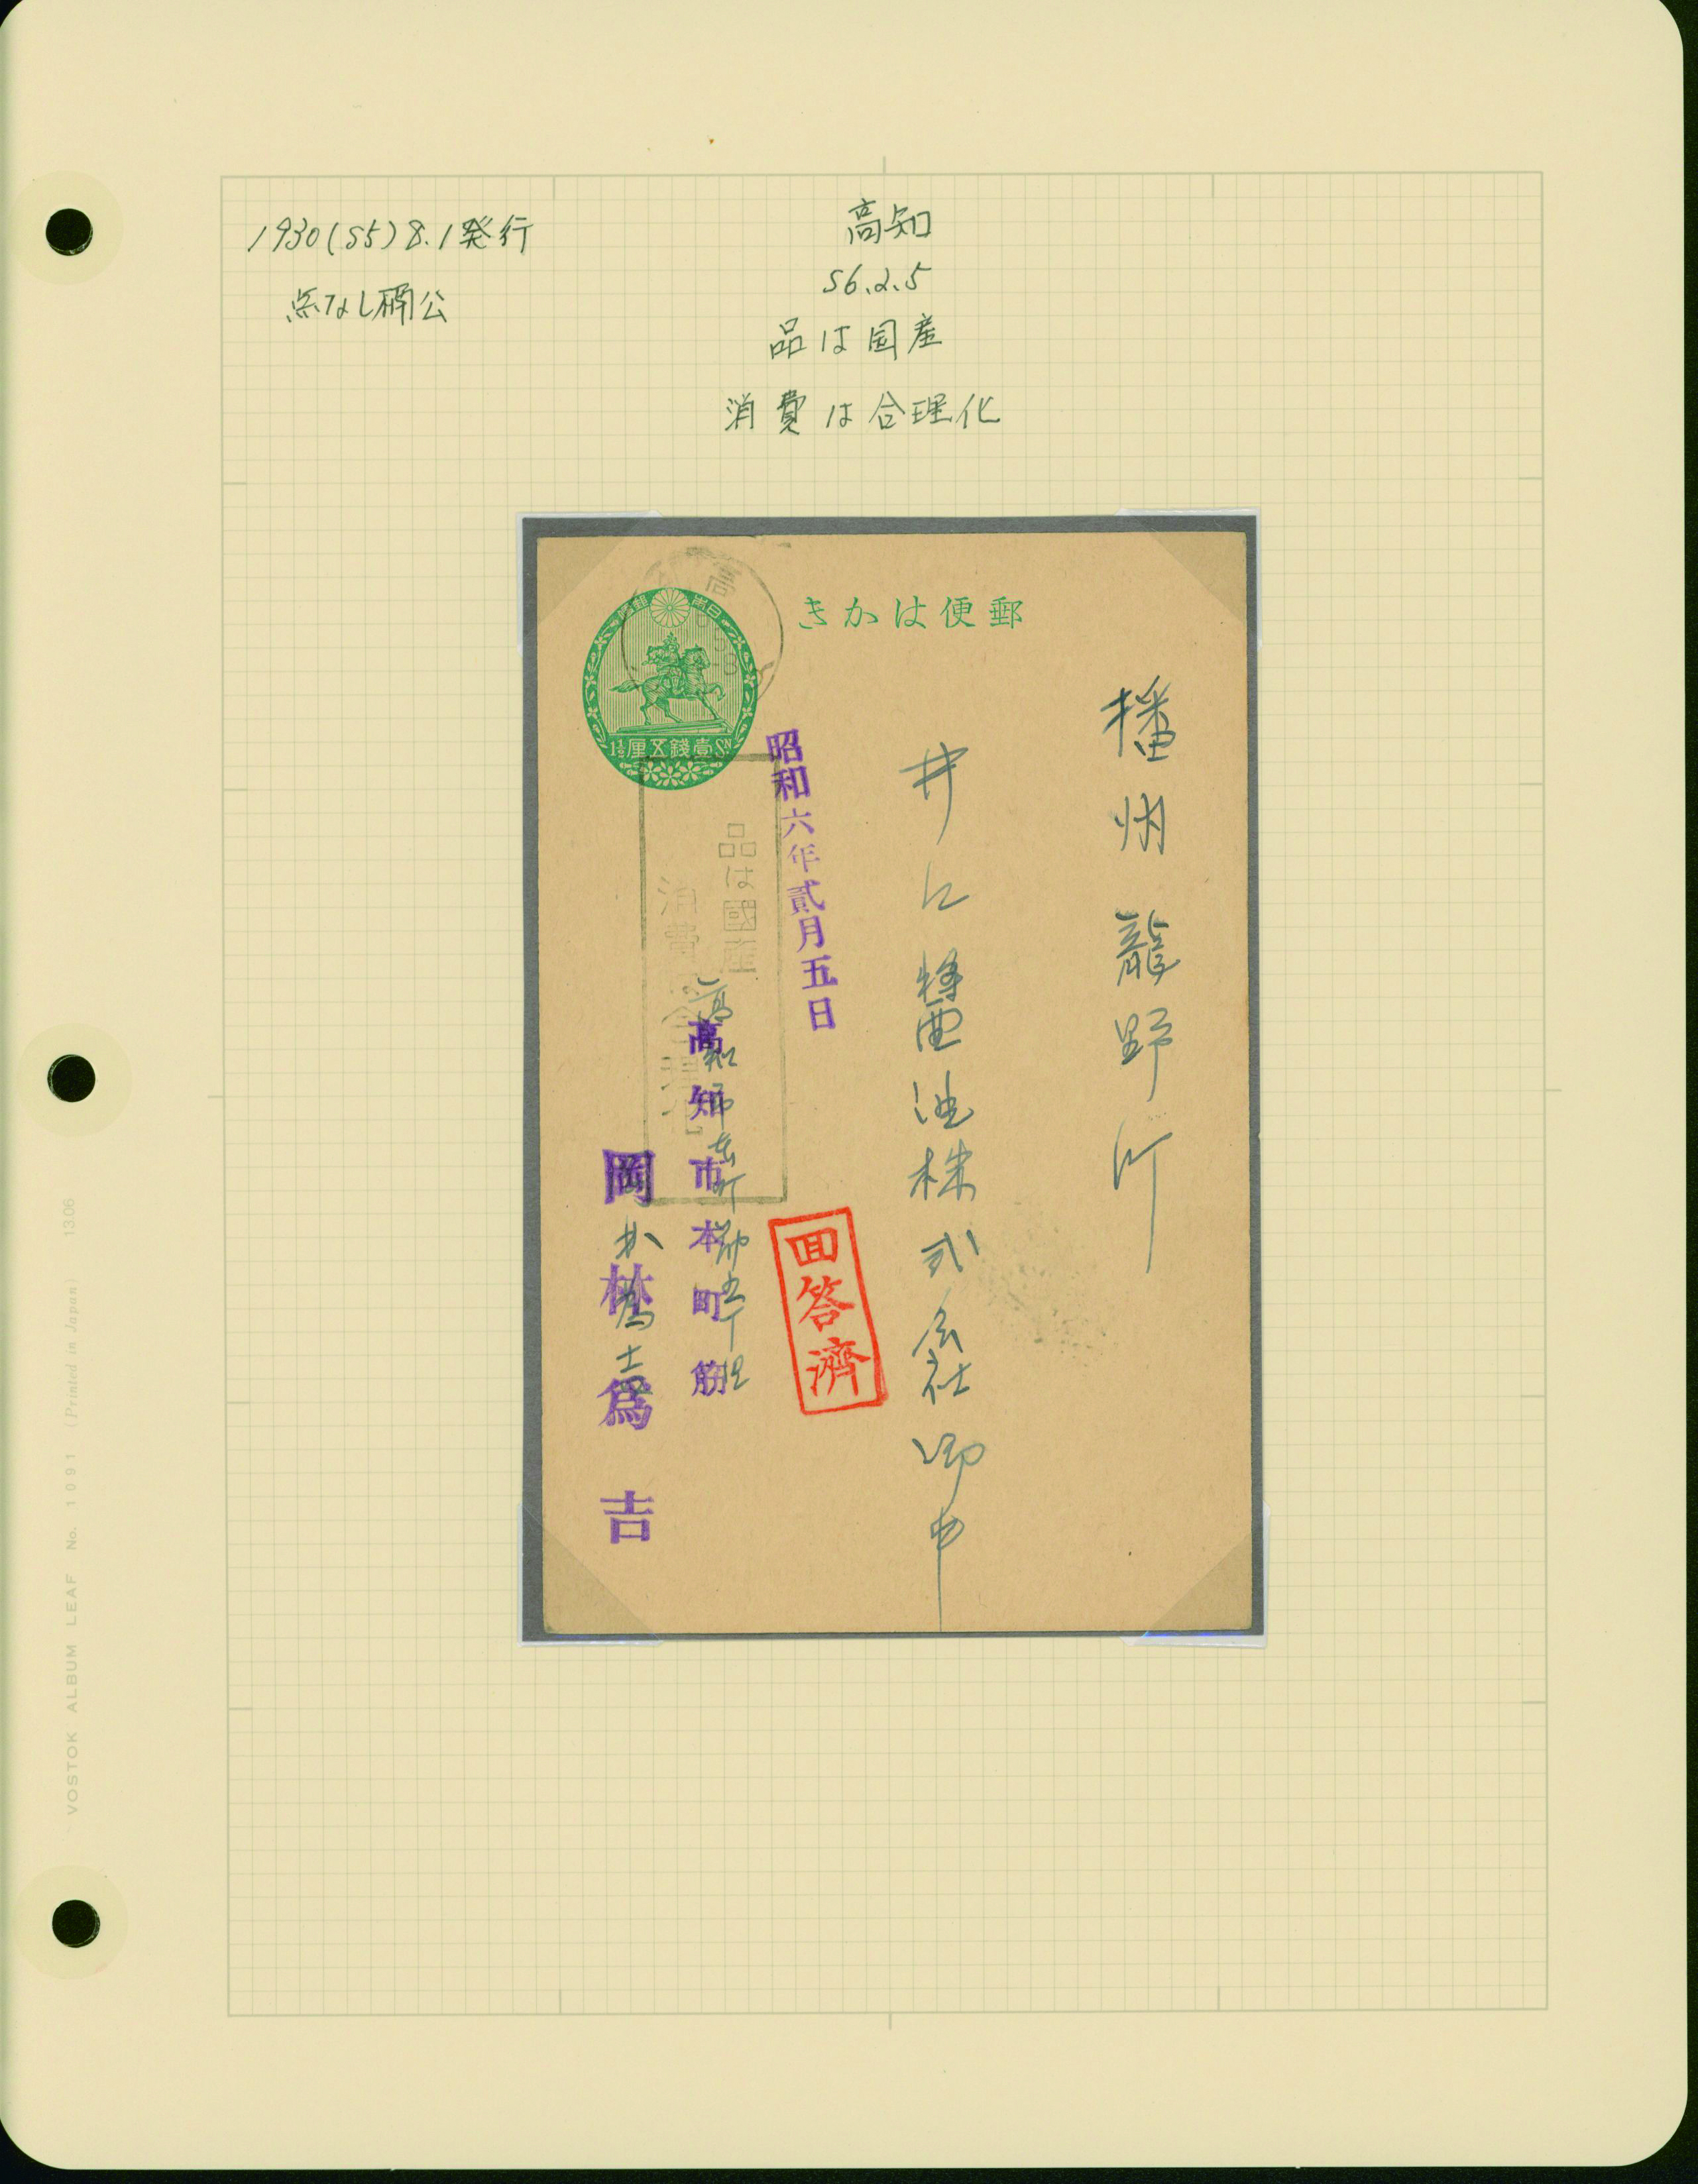 1930(S5)8.1発行
点なし楠公
高知
S6.2.5
品は国産
消費は合理化
きかはび便郵
日本
1½ 厘五銭壹 SN
播州龍野町
井上醤油株式会社御中
昭和六年貳月五日
品は國産
消費は合理化
回答済
高知市本町筋
岡林為吉
高知市本町筋五丁目
VOSTOK ALBUM LEAF No. 1091 (Printed in Japan) 1306